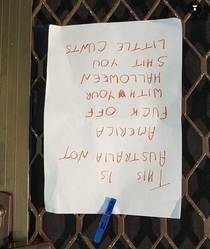 THIS IS
AUSTRALIA NOT
AMERICA
FUCK OFF
WITH YOUR
HALLOWEEN
SHIT YOU
LITTLE CUNTS